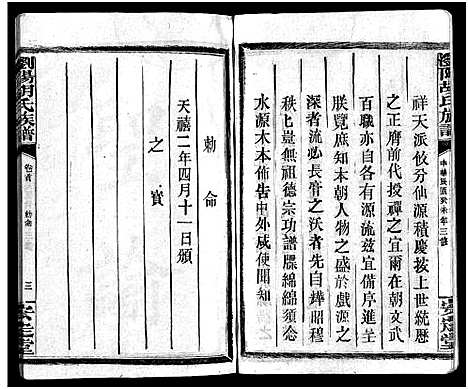 瀏陽胡氏族譜
中華民國癸未年三修
安定堂
祥天派攸分仙源積慶按上世統歷
之正膺前代授禪之宜爾在朝文武
百職亦必各有源流茲宜備序進呈
朕覽庶知本朝人物之盛於戲源之
深者流必長膏之沃者先自燁昭穆
秩上豈無祖德宗功譜牒綿綿須念
水源木本佈告中外咸使聞知
勅命
天禧二年四月十一日頒
之寶
瀏陽胡氏族譜
卷首
勅命
三
安定堂